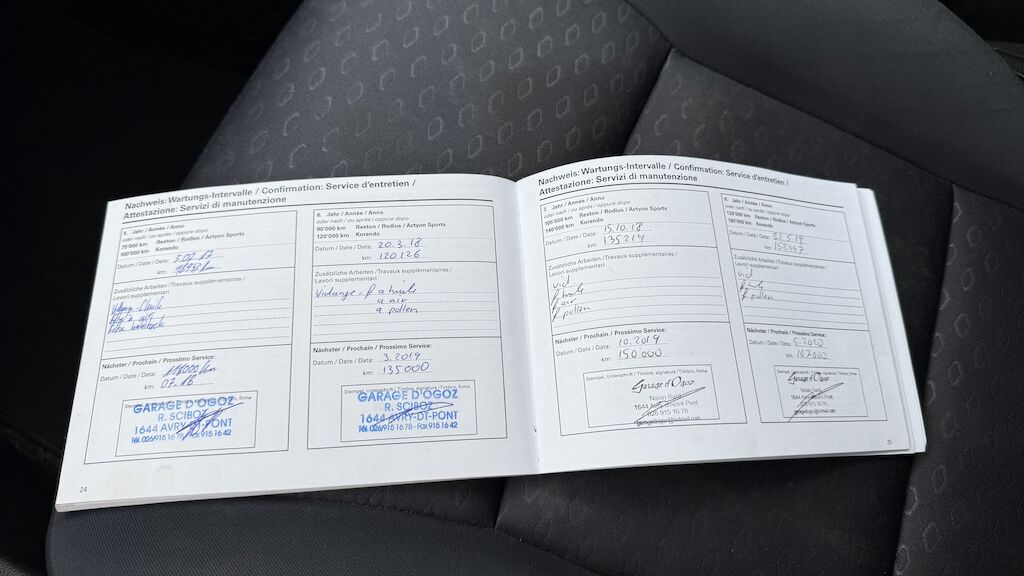 Nachweis: Wartungs-Intervalle / Confirmation: Service d'entretien /
Attestazione: Servizi di manutenzione
5. Jahr / Année / Anno
oder nach / ou après / oppure dopo
75'000 km Rexton / Rodius / Actyon Sports
100'000 km Korando
Datum / Date / Data:
km:
Zusätzliche Arbeiten / Travaux supplémentaires /
Lavori supplementari
Nächster / Prochain / Prossimo Service:
Datum / Date / Data:
km: 07.18
Stempel, Unterschrift / Timbre, signature / Timbro, firma
GARAGE D'OGOZ
R. SCIBOZ
1644 AVRY-DT-PONT
Tél. 026/915 16 78 - Fax 915 16 42
24
6. Jahr / Année / Anno
oder nach / ou après / oppure dopo
90'000 km Rexton / Rodius / Actyon Sports
120'000 km Korando
Datum / Date / Data: 20.3.18
km: 120126
Zusätzliche Arbeiten / Travaux supplémentaires /
Lavori supplementari
Vidange - f a huile
a air
a pollen
Nächster / Prochain / Prossimo Service:
Datum / Date / Data: 3.2019
km: 135000
Stempel, Unterschrift / Timbre, signature / Timbro, firma
GARAGE D'OGOZ
R. SCIBOZ
1644 AVRY-DT-PONT
Tél. 026/915 16 78 - Fax 915 16 42
Nachweis: Wartungs-Intervalle / Confirmation: Service d'entretien /
Attestazione: Servizi di manutenzione
7. Jahr / Année / Anno
oder nach / ou après / oppure dopo
105'000 km Rexton / Rodius / Actyon Sports
140'000 km Korando
Datum / Date / Data: 15.10.18
km: 135214
Zusätzliche Arbeiten / Travaux supplémentaires /
Lavori supplementari
vid
f huile
f air
f pollen
Nächster / Prochain / Prossimo Service:
Datum / Date / Data: 10.2019
km: 150'000
Stempel, Unterschrift / Timbre, signature / Timbro, firma
Garage d'Ogoz
Nolan
1644 Avry-devant-Pont
026 915 16 78
8. Jahr / Année / Anno
oder nach / ou après / oppure dopo
120'000 km Rexton / Rodius / Actyon Sports
160'000 km Korando
Datum / Date / Data:
km:
Zusätzliche Arbeiten / Travaux supplémentaires /
Lavori supplementari
vid
f huile
f pollen
Nächster / Prochain / Prossimo Service:
Datum / Date / Data: 5.2020
km: 167000
Stempel, Unterschrift / Timbre, signature / Timbro, firma
Garage d'Ogoz
25